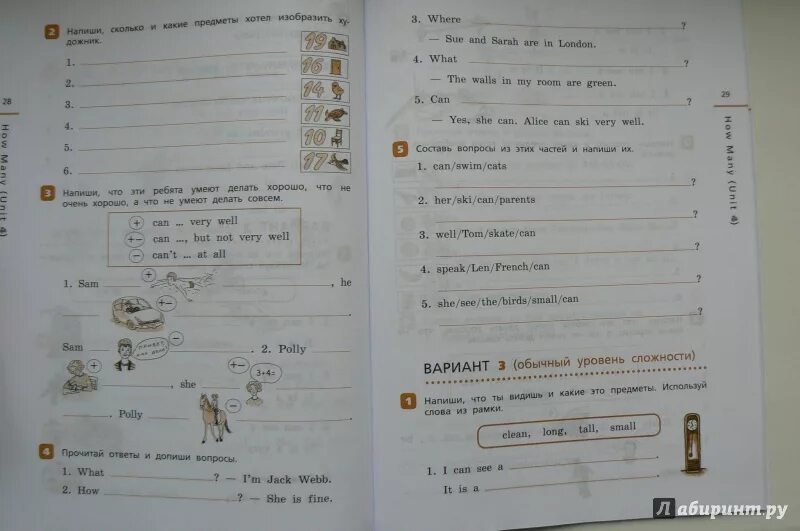 28
How Many (Unit 4)
2 Напиши, сколько и какие предметы хотел изобразить художник.
1.
2.
3.
4.
5.
6.
19
16
14
11
10
17
3 Напиши, что эти ребята умеют делать хорошо, что не
очень хорошо, а что не умеют делать совсем.
+ can ... very well
+− can ..., but not very well
− can't ... at all
1. Sam + , he
+−
Sam − . 2. Polly
привет, как дела?
+ , she +−
3+4=
, Polly −
4 Прочитай ответы и допиши вопросы.
1. What ? — I'm Jack Webb.
2. How ? — She is fine.
3. Where ?
— Sue and Sarah are in London.
4. What ?
— The walls in my room are green.
5. Can ?
— Yes, she can. Alice can ski very well.
29
How Many (Unit 4)
5 Составь вопросы из этих частей и напиши их.
1. can/swim/cats
?
2. her/ski/can/parents
?
3. well/Tom/skate/can
?
4. speak/Len/French/can
?
5. she/see/the/birds/small/can
?
ВАРИАНТ 3 (обычный уровень сложности)
1 Напиши, что ты видишь и какие это предметы. Используй
слова из рамки.
clean, long, tall, small
1. I can see a .
It is a
Лабиринт.ру